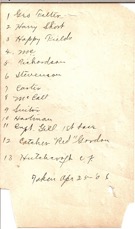 1 Geo Fuller
2 Harry Short
3 Happy Fields
4 Mc
5 Richardson
6 Stevenson
7 Carter
8 McCall
9
10 Hartman
11 Capt Gill 1st base
12 Catcher "Red" Gordon
13 Hutchcraft c.f.
Taken Apr 25-08